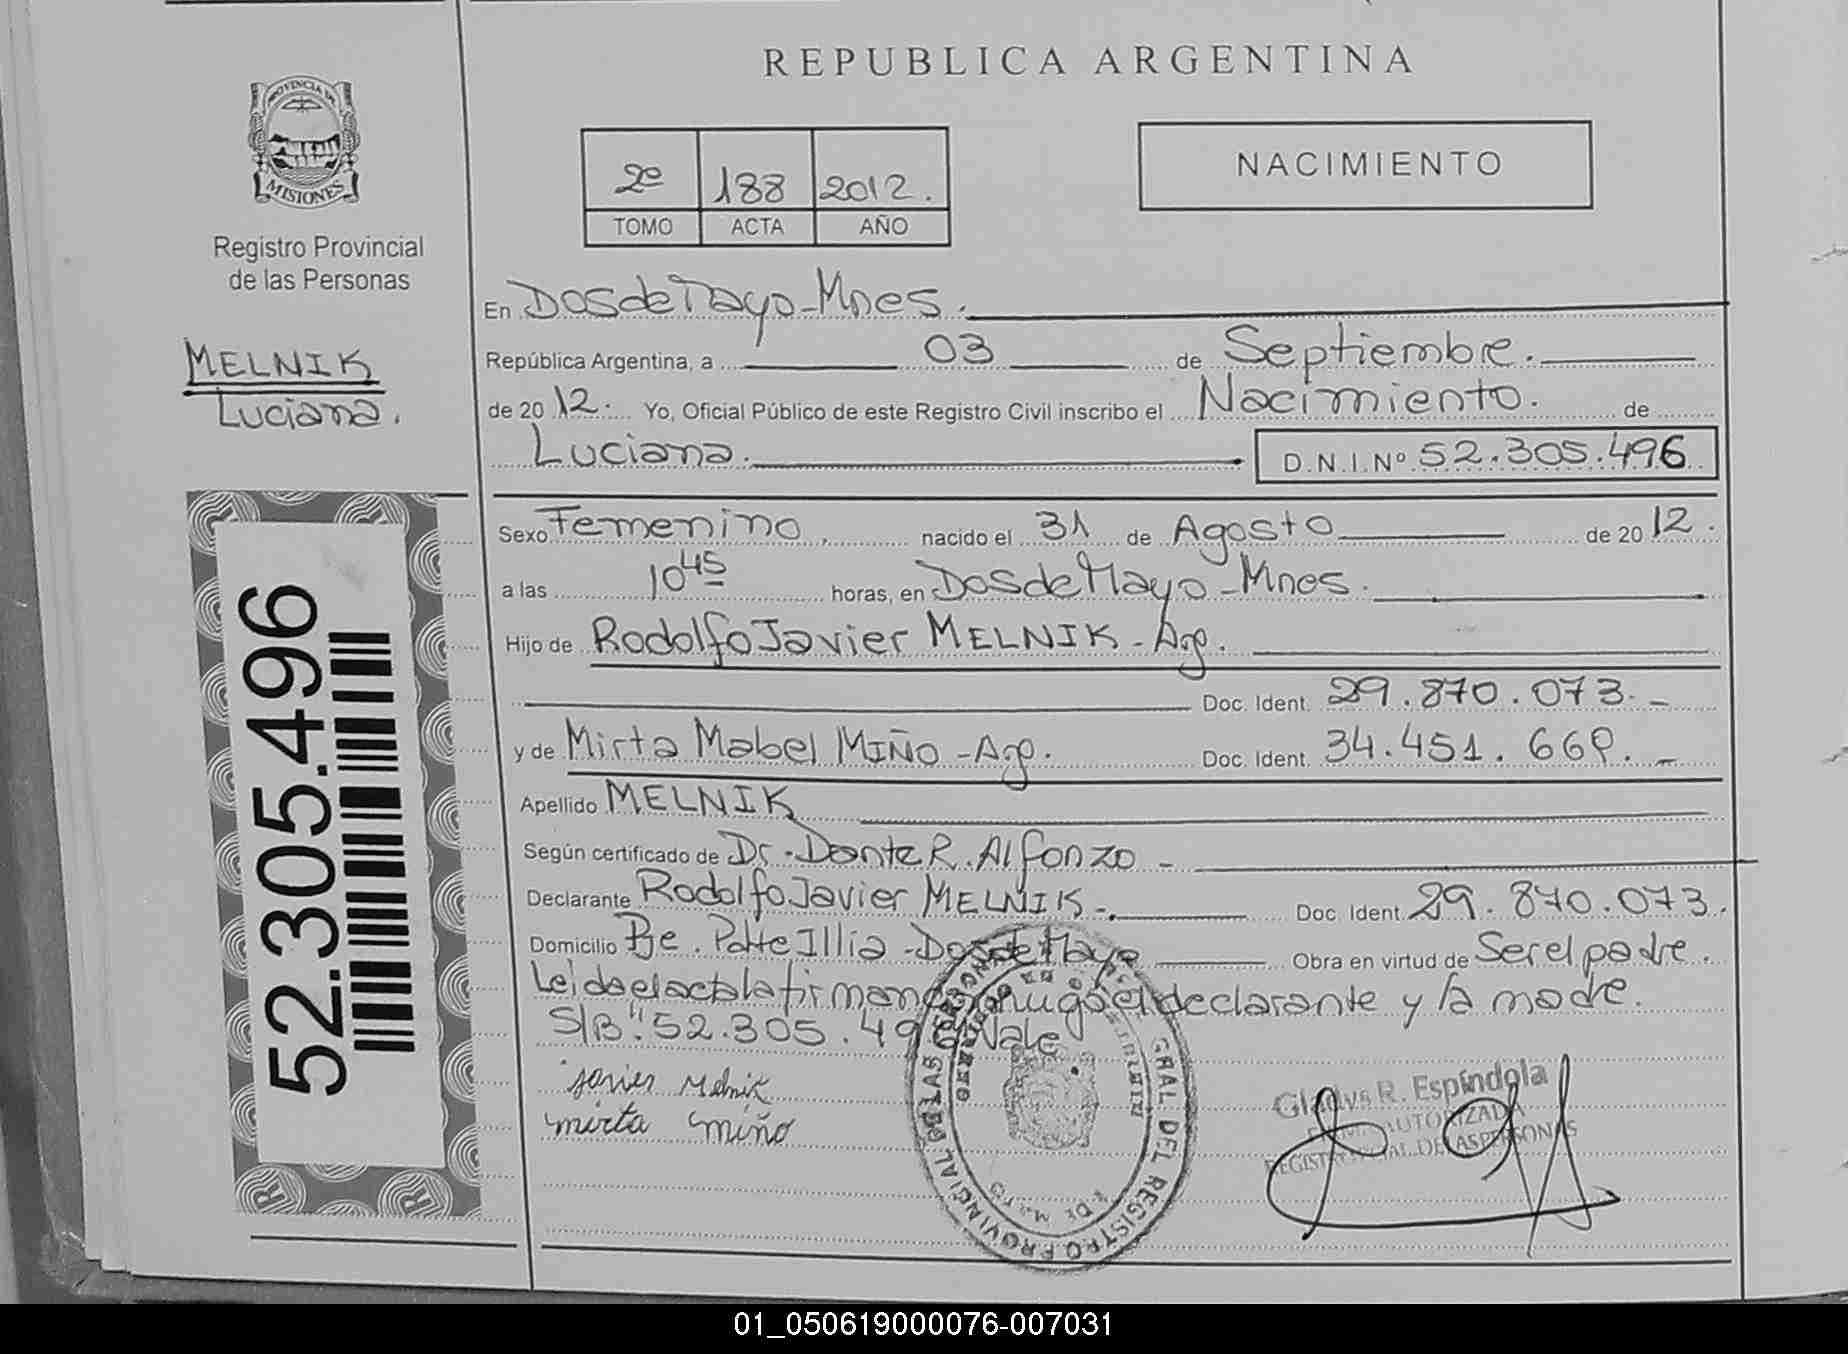 REPUBLICA ARGENTINA
PROVINCIA DE
MISIONES
Registro Provincial
de las Personas
MELNIK
Luciana.
52.305.496
2º 188 2012.
TOMO ACTA AÑO
NACIMIENTO
En Dos de Mayo - Mnes.
República Argentina, a 03 de Septiembre.
de 20 12. Yo, Oficial Público de este Registro Civil inscribo el Nacimiento. de
Luciana. D.N.I.Nº 52.305.496
Sexo Femenino, nacido el 31 de Agosto de 20 12.
a las 10 45 horas, en Dos de Mayo - Mnes.
Hijo de Rodolfo Javier MELNIK - Arg.
Doc. Ident. 29.870.073. -
y de Mirta Mabel MIÑO - Arg. Doc. Ident. 34.451.669. -
Apellido MELNIK
Según certificado de Dr. Dante R. Alfonzo -
Declarante Rodolfo Javier MELNIK -. Doc. Ident. 29.870.073.
Domicilio Pje. Pdte Illia - Dos de Mayo Obra en virtud de Ser el padre.
Leida el acta la firman conmigo el declarante y la madre.
S/B: "52.305.496" Vale
Javier Melnik
mirta miño
Gladys R. Espíndola
GRAL DEL REGISTRO PROVINCIAL DE LAS PERSONAS
01_050619000076-007031